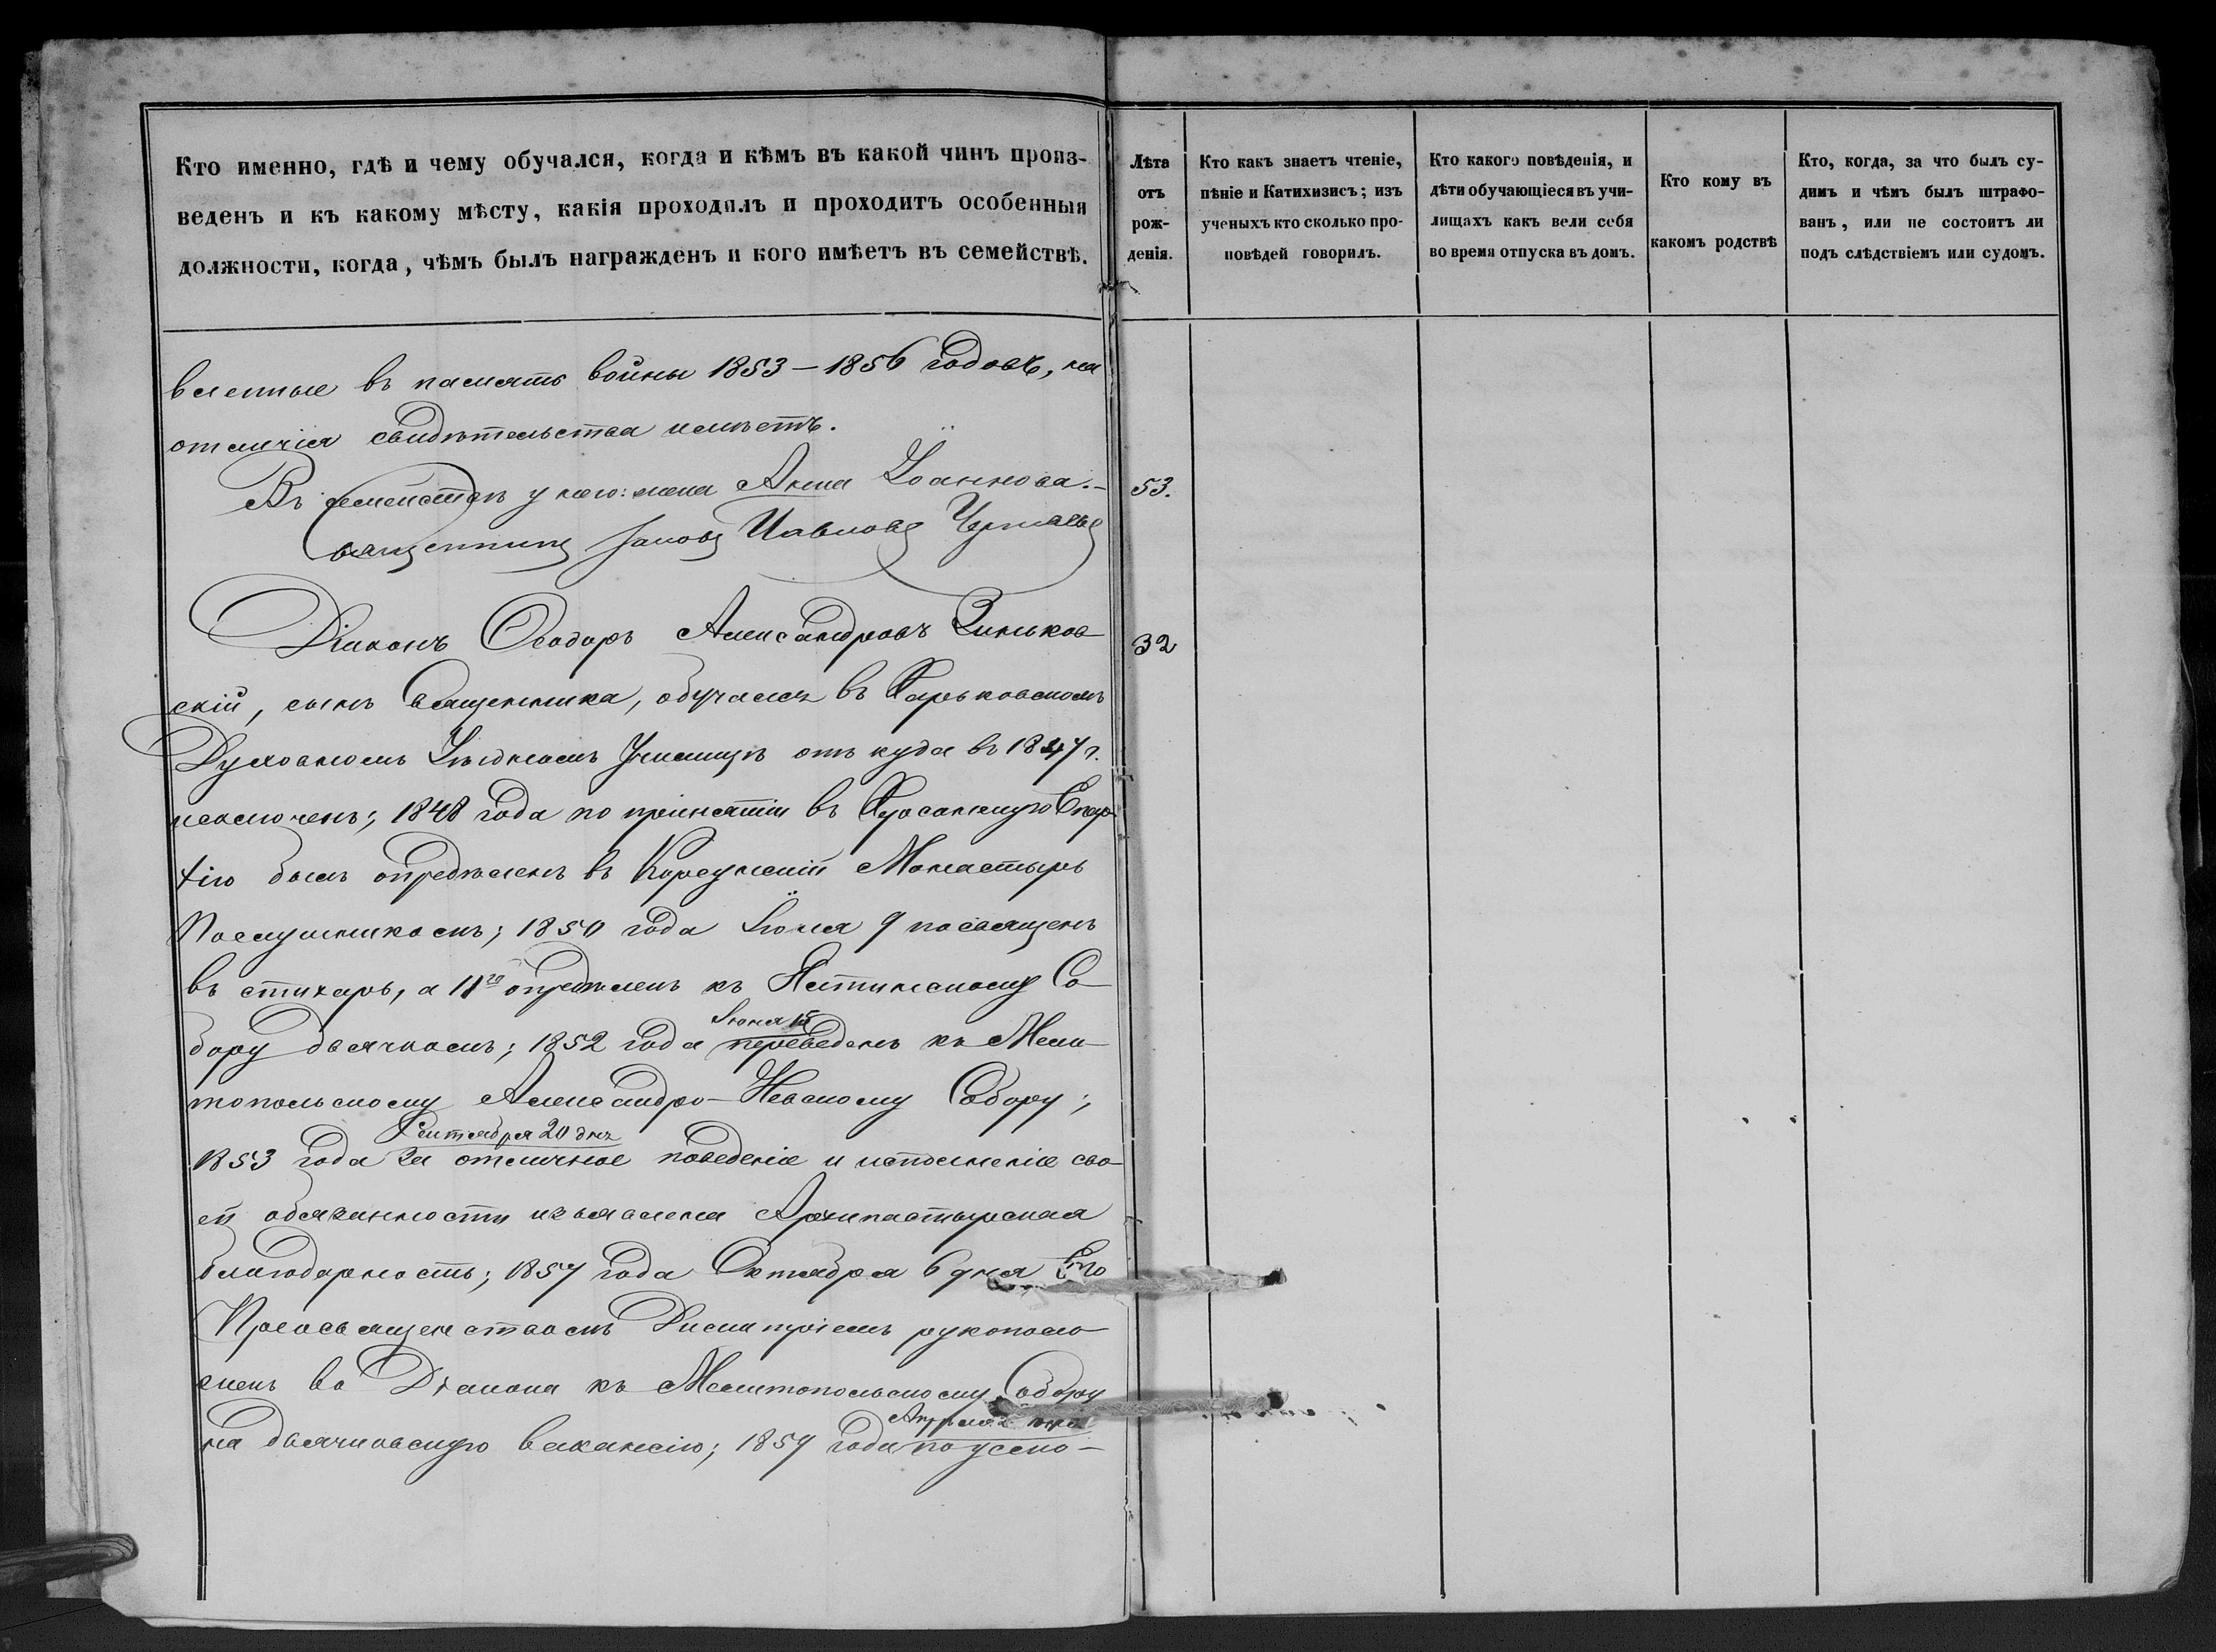 Кто именно, гдѣ и чему обучался, когда и кѣмъ въ какой чинъ произ-
веденъ и къ какому мѣсту, какія проходилъ и проходитъ особенныя
должности, когда, чѣмъ былъ награжденъ и кого имѣетъ въ семействѣ.
Лѣта
отъ
рож-
денія.
Кто какъ знаетъ чтеніе,
пѣніе и Катихизисъ; изъ
ученыхъ кто сколько про-
повѣдей говорилъ.
Кто какого повѣденія, и
дѣти обучающіеся въ учи-
лищахъ какъ вели себя
во время отпуска въ домъ.
Кто кому въ
какомъ родствѣ
Кто, когда, за что былъ су-
димъ и чѣмъ былъ штрафо-
ванъ, или не состоитъ ли
подъ слѣдствіемъ или судомъ.
вленные въ память войны 1853–1856 годовъ, на
отличія свидѣтельства имѣетъ.
Въ семействѣ у него: жена Анна Іоаннова.– 53.
Священникъ Іаковъ Павловъ
Діаконъ Ѳеодоръ Александровъ Зиньков- 32
скій, сынъ Священника, обучался въ Харьковскомъ
Духовномъ Уѣздномъ Училищѣ отъ куда въ 1847 г.
исключенъ; 1848 года по принятіи въ Херсонскую Епар-
хію былъ опредѣленъ въ Корсунскій Монастырь
Послушникомъ; 1850 года Іюля 9 посвященъ
въ стихарь, а 11го опредѣленъ къ Ялтинскому Со-
бору дьячкомъ; 1852 года Іюня 15 переведенъ къ Мели-
топольскому Александро-Невскому Собору;
1853 года Сентября 20 дня за отличное поведеніе и исполненіе сво-
ей обязанности изъявлена Архипастырская
благодарность; 1857 года Октября 6 дня Его
Преосвященствомъ Димитріемъ рукополо-
женъ во Діакона къ Мелитопольскому Собору
на дьячковскую вакансію; 1859 года Апрѣля по усмо-